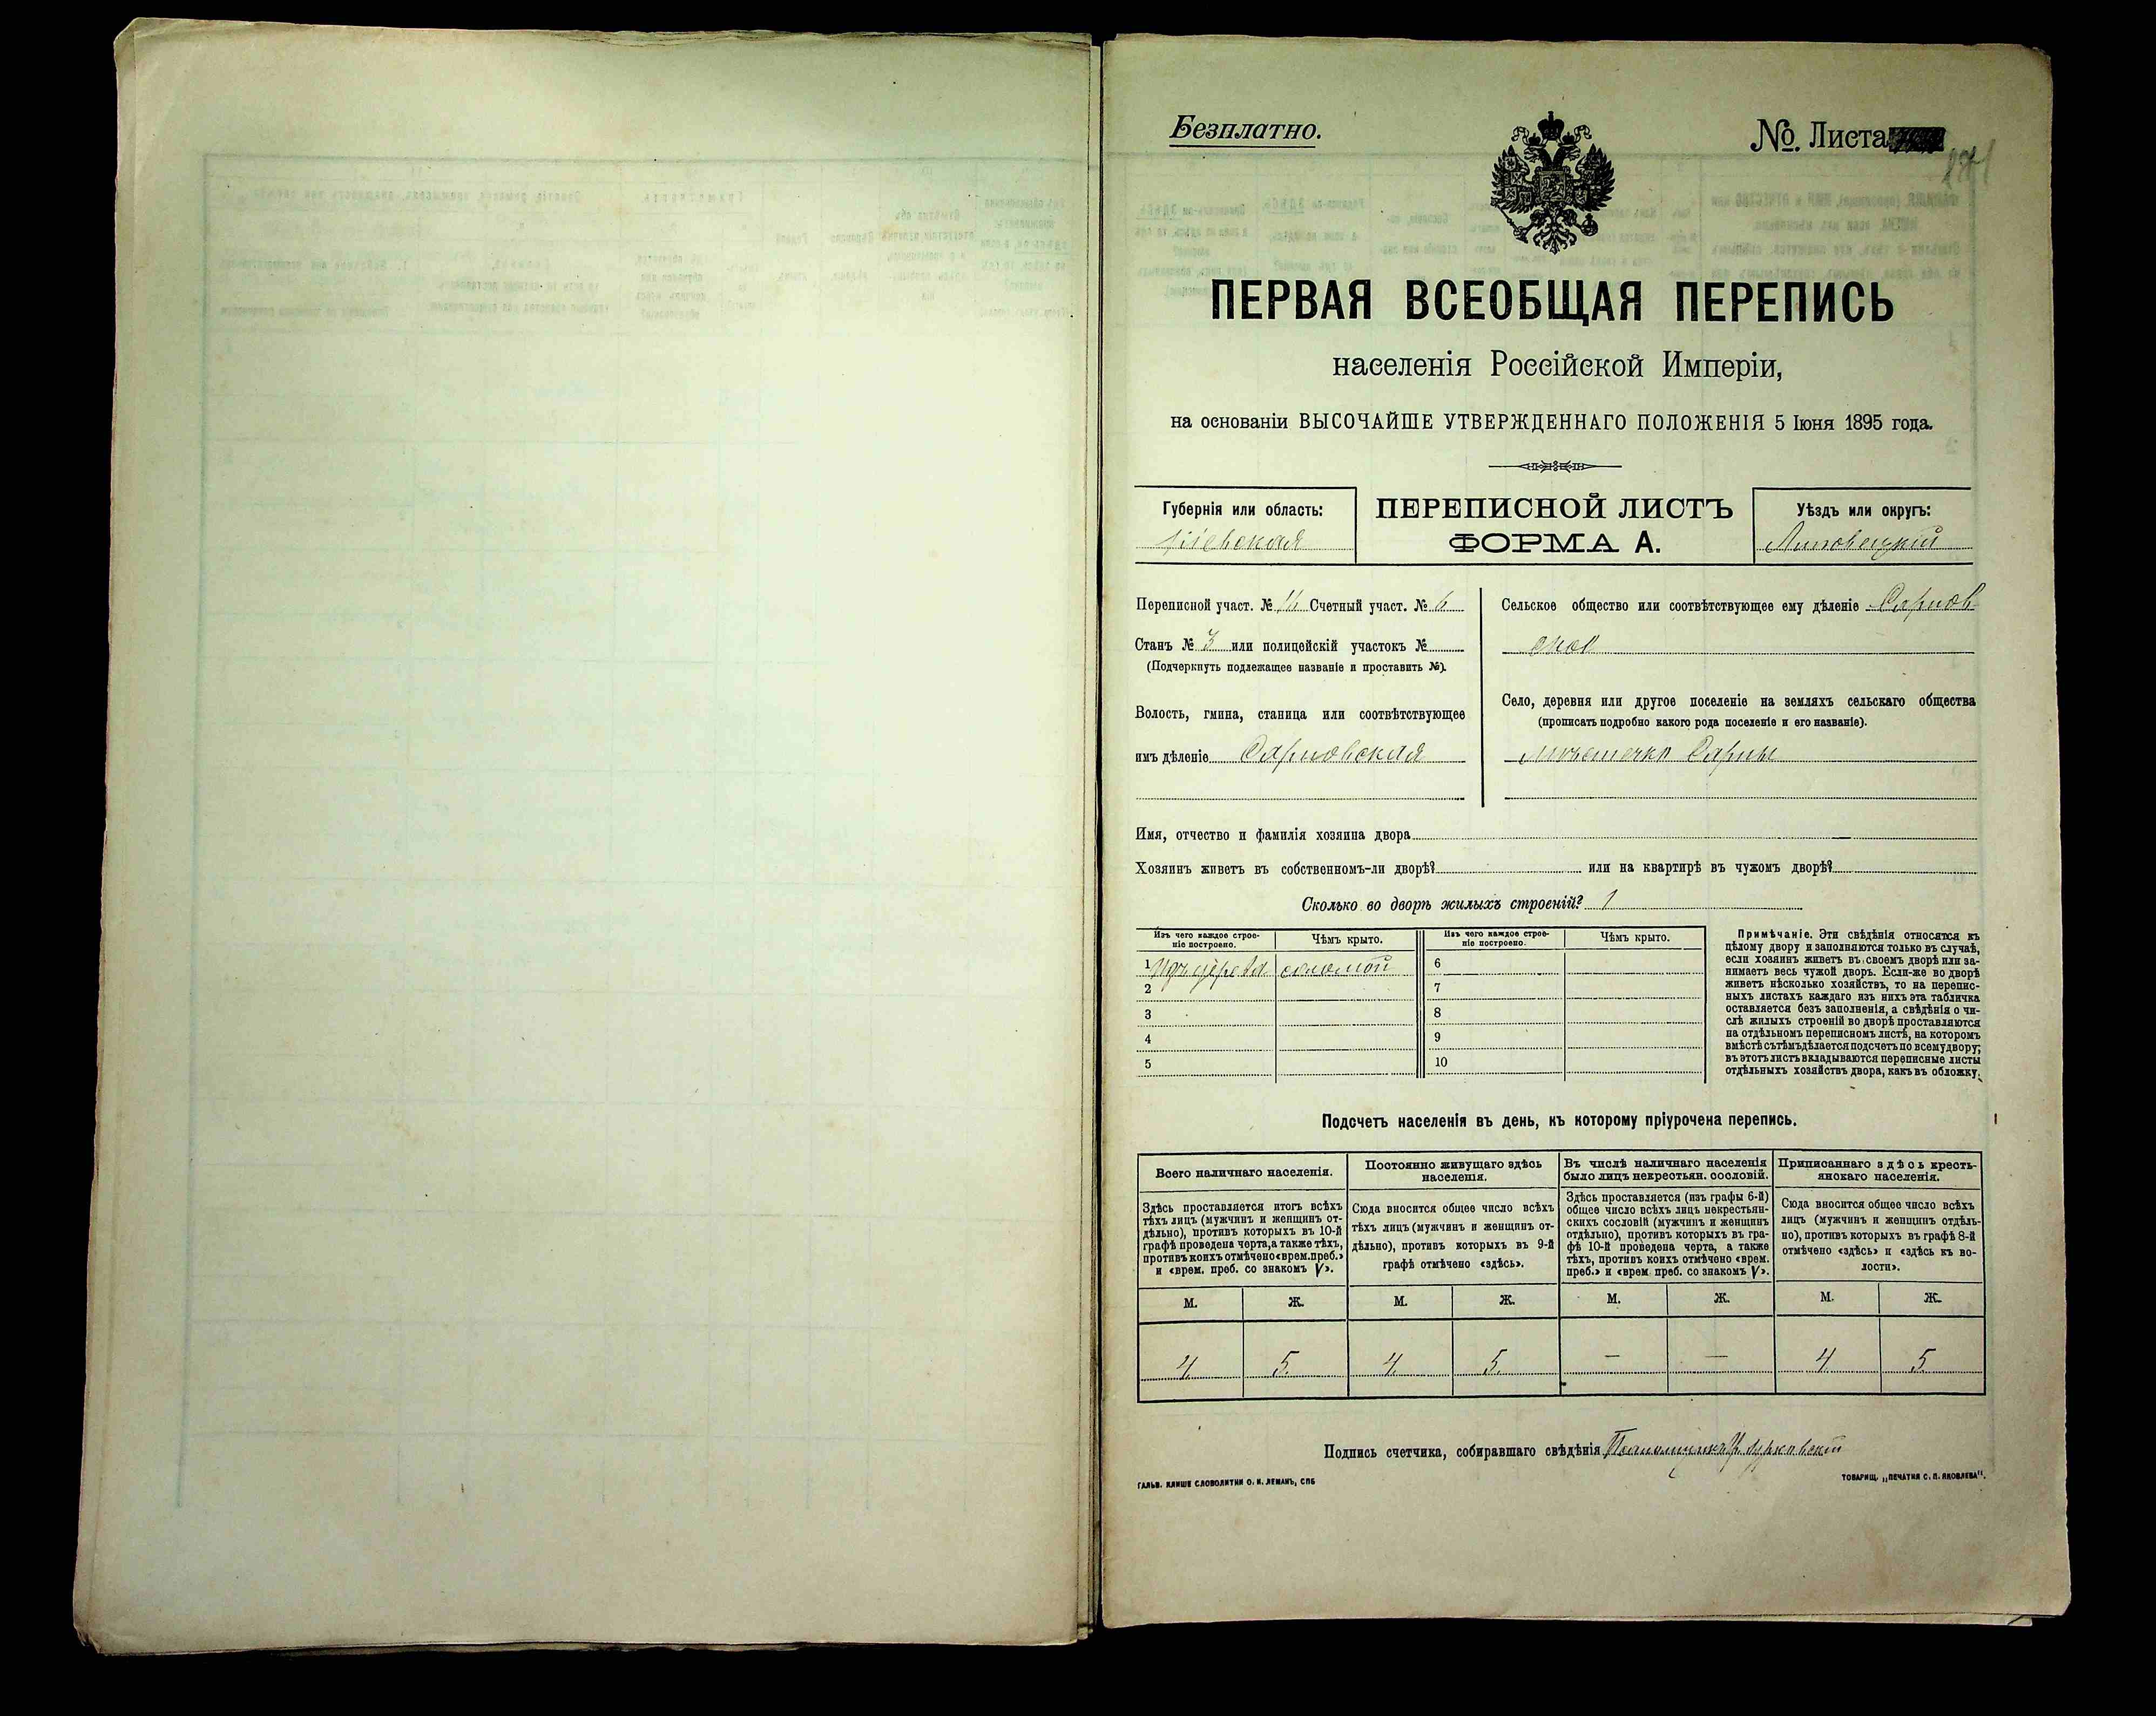 Безплатно.
№. Листа
ПЕРВАЯ ВСЕОБЩАЯ ПЕРЕПИСЬ
населенія Россійской Имперіи,
на основаніи ВЫСОЧАЙШЕ УТВЕРЖДЕННАГО ПОЛОЖЕНІЯ 5 Іюня 1895 года.
Губернія или область:
Кіевская
ПЕРЕПИСНОЙ ЛИСТЪ
ФОРМА А.
Уѣздъ или округъ:
Липовецкій
Переписной участ. № Счетный участ. № 6
Станъ № 3 или полицейскій участокъ №
(Подчеркнуть подлежащее названіе и проставить №).
Волость, гмина, станица или соотвѣтствующее
имъ дѣленіе Сарновская
Сельское общество или соотвѣтствующее ему дѣленіе Сарнов
ское
Село, деревня или другое поселеніе на земляхъ сельскаго общества
(прописать подробно какого рода поселеніе и его названіе).
мѣстечко Сарны
Имя, отчество и фамилія хозяина двора
Хозяинъ живетъ въ собственномъ-ли дворѣ? или на квартирѣ въ чужомъ дворѣ?
Сколько во дворѣ жилыхъ строеній? 1
Изъ чего каждое строе-
ніе построено.
Чѣмъ крыто.
Изъ чего каждое строе-
ніе построено.
Чѣмъ крыто.
1 Изъ дерева соломой 6
2 7
3 8
4 9
5 10
Примѣчаніе. Эти свѣдѣнія относятся къ
цѣлому двору и заполняются только въ случаѣ,
если хозяинъ живетъ въ своемъ дворѣ или за-
нимаетъ весь чужой дворъ. Если-же во дворѣ
живетъ нѣсколько хозяйствъ, то на перепис-
ныхъ листахъ каждаго изъ нихъ эта табличка
оставляется безъ заполненія, а свѣдѣнія о чи-
слѣ жилыхъ строеній во дворѣ проставляются
на отдѣльномъ переписномъ листѣ, на которомъ
вмѣстѣ съ тѣмъ дѣлается подсчетъ по всему двору;
въ этотъ листъ вкладываются переписные листы
отдѣльныхъ хозяйствъ двора, какъ въ обложку.
Подсчетъ населенія въ день, къ которому пріурочена перепись.
Всего наличнаго населенія.
Здѣсь проставляется итогъ всѣхъ
тѣхъ лицъ (мужчинъ и женщинъ от-
дѣльно), противъ которыхъ въ 10-й
графѣ проведена черта, а также тѣхъ,
противъ коихъ отмѣчено «врем. преб.»
и «врем. преб. со знакомъ V».
Постоянно живущаго здѣсь
населенія.
Сюда вносится общее число всѣхъ
тѣхъ лицъ (мужчинъ и женщинъ от-
дѣльно), противъ которыхъ въ 9-й
графѣ отмѣчено «здѣсь».
Въ числѣ наличнаго населенія
было лицъ некрестьян. сословій.
Здѣсь проставляется (изъ графы 6-й)
общее число всѣхъ лицъ некрестьян-
скихъ сословій (мужчинъ и женщинъ
отдѣльно), противъ которыхъ въ гра-
фѣ 10-й проведена черта, а также
тѣхъ, противъ коихъ отмѣчено «врем.
преб.» и «врем. преб. со знакомъ V».
Приписаннаго здѣсь кресть-
янскаго населенія.
Сюда вносится общее число всѣхъ
лицъ (мужчинъ и женщинъ отдѣль-
но), противъ которыхъ въ графѣ 8-й
отмѣчено «здѣсь» и «здѣсь къ во-
лости».
М. Ж. М. Ж. М. Ж. М. Ж.
4 5 4 5 — — 4 5
Подпись счетчика, собиравшаго свѣдѣнія
ГАЛЬВ. КЛИШЕ СЛОВОЛИТНИ О. И. ЛЕМАНЪ, СПБ
ТОВАРИЩ. „ПЕЧАТНЯ С. П. ЯКОВЛЕВА".